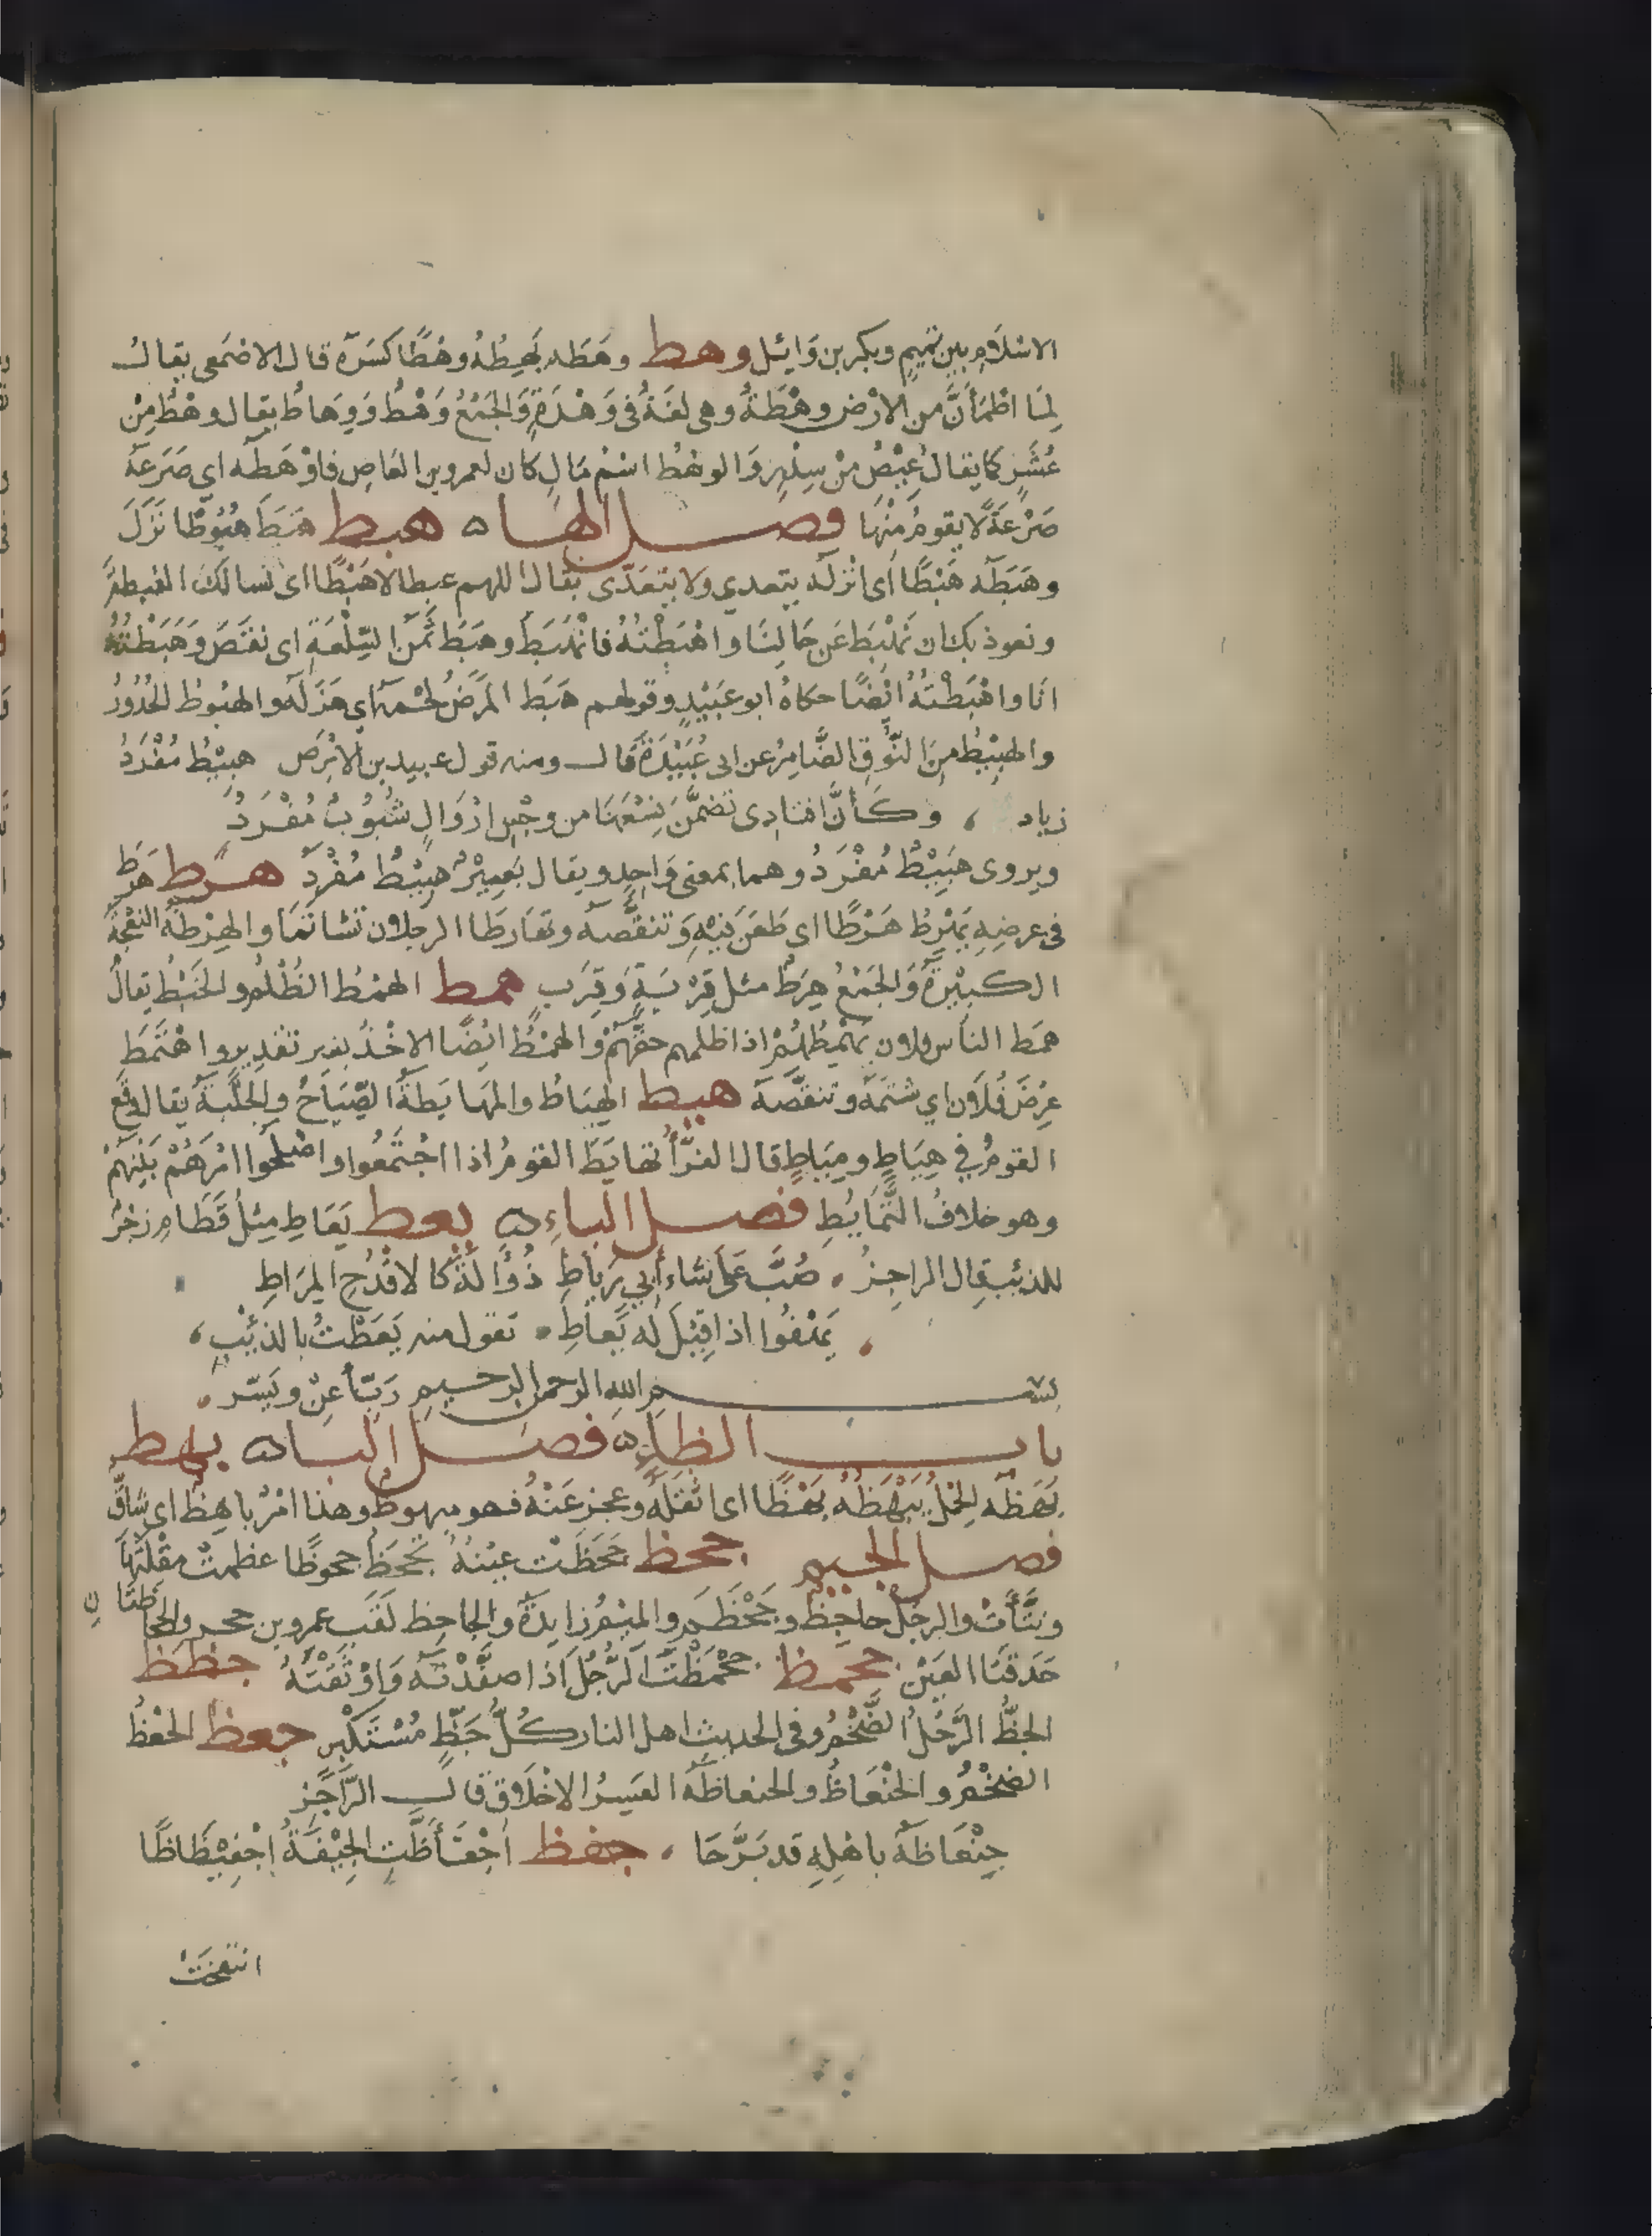 الاسْلَامِ بين تميمٍ وبكر بن وَائِل وهط وهَطَه يَهِطُهُ وهْطًا كسَرَه قال الاصْمَعى يقالُ
لِمَا اطْمَأنَّ من الارْض وهْطَةٌ وهى لغَةٌ فى وَهْدَةٍ وَالجَمْعُ وَهْطٌ وَوِهَاطٌ يقال وهْطٌ مِنْ
عُشَرٍ كما يقالُ عِيْصٌ مِنْ سِدْرٍ وَالوهْطُ اسْمُ مَالٍ كان لعمرو بن العَاصِ فاوْهَطَه اى صَرَعَه
صَرْعَةً لا يقومُ مِنْهَا فصل الهاء هبط هَبَطَ هُبُوطًا نَزَلَ
وهَبَطَه هَبْطًا اَى انْزلَه يتعدي ولا يتعدّى يقال اللهم غبطا لا هَبْطًا اى نسالكَ الغبطةَ
ونعوذ بك ان نَهْبَطَ عَن حَالِنَا واهْبَطْتُهُ فانْهَبَطَ وهبَطَ ثَمَن السِّلْعَةِ اى نقَصَ وَهَبَطْتُهُ
انَا واهْبَطْتُهُ ايْضًا حكاهُ ابو عبَيْدٍ وقولهم هَبَط المرَضُ لحْمَهُ اى هَزَلَه والهبُوطُ الحُدُورُ
والهبِيْطُ مِنَ النُّوقِ الضَّامِرُ عن ابى عُبَيْدَةَ قال ومنه قول عبيد بن الابْرَص هبِيْطٌ مُفْرَدُ
زياد ، وكَأنَّ اقتادِى تضمَّنَ نِسْعَهَا من وحْشِ اوْرَالٍ شبُوبٌ مُفْرَدُ
ويروى هَبِيْطٌ مُفْرَدُ وهما بمعنى وَاحِدٍ ويقال بَعِيْرٌ هبِيْطٌ مُفْرَد هرط هَرَط
فى عرضِهِ يَهْرِطُ هَرْطًا اى طَعَنَ فيْهِ وَتنقَّصه وتهَارَطَا الرجلان تشاتمَا والهِرْطَةُ النعْجَةُ
الكبِيْرَةُ وَالجَمْعُ هِرَطٌ مثل قِرْبَةٍ وَقِرَبٍ همط الهمْطُ الظُّلْمُ والخَبْطُ يقالُ
همَط الناسَ فلان يَهْمِطُهُمْ اذا ظلمهم حقَّهُمْ والهمْطُ ايْضًا الاخْذُ بغير تقْدِيرٍ واهْتَمَطَ
عِرْضَ فُلَانٍ اي شتَمَهُ وتنقَّصَه هيط الهِيَاطُ والمهَايَطَةُ الصِّيَاحُ والجَلَبَةُ يقال وقع
القومُ في هِيَاطٍ ومِيَاطٍ قال الفرَّاُ تهايَطَ القومُ اذا اجْتَمعُوا واصْلحُوا امْرَهُمْ بَيْنهمْ
وهو خلافُ التَّمَايُطِ فصل الياءِ يعط يَعَاطِ مِثلُ قَطَامِ زجْرٌ
للذئبِ قال الراجِزُ . صُبَّ عَلى شاء أبي رِيَاطِ ذُوَالَةٌ كالاقْدُحِ المِرَاطِ
، يَهْفُوا اذا قِيْلَ له يَعَاطِ . تقول منه يَعَطْتُ بالذِئبِ ،
بسم الله الرحمن الرحيم رَبّ أعِنْ ويَسّر .
باب الظاء فصل الباء بهظ
بَهَظَه الحِمْلُ يَبْهَظُه بهْظًا اى اثقَلَهُ وعجز عَنْهُ فهو مبهوظٌ وهذا امْرٌ باهِظٌ اى شاقٌّ
فصل الجيم جحظ جَحَظَتْ عيْنهُ تجْحَظُ جحوظًا عظمتْ مقْلَتهَا
ونتَأَتْ والرجُلُ جاحِظٌ وجَحْظَم والميْمُ زايدَةٌ والجاحِظ لَقَب عمرو بن بحر والجاحظتانِ
حَدقتَا العَيْنِ جحمظ جَحْمَظْتُ الرَّجُلَ اذا صفَّدْتَه وَاوْثَقْتَهُ جظظ
الجظُّ الرَّجُلُ الضَّخْمُ وفى الحديثِ اهل النار كُلُّ جَظٍّ مُسْتكْبِرٍ جعظ الجَعْظُ
الضخْمُ والجِنْعَاظُ والجنعاظَه العَسِرُ الاخْلَاقِ قال الرَّاجز
جِنْعَاظَةٌ باهْلِهِ قد بَرَّحَا ، جفظ اجْفَأظَّتِ الجِيْفَةُ اجْفِيْظَاظًا
انتفخَتْ